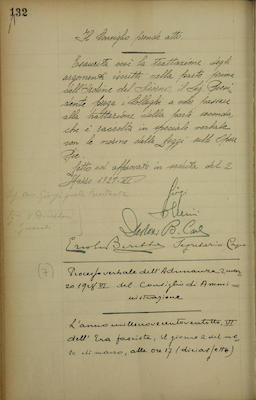 132
Il Consiglio prende atto
Esaurita così la trattazione degli
argomenti iscritti nella parte prima
dell'Ordine del Giorno, il Sig. Presi
dente prega i Colleghi a voler passare
alla trattazione della parte seconda,
che è raccolta in speciale verbale
con le norme della Legge sull'Opere
Pie.
Letto ed approvato in seduta del 2
Marzo 1928 - VI
Segretario
(7)
Processo verbale dell'Adunanza 2 mar
zo 1928 VI del Consiglio di Ammi
nistrazione
L'anno millenovecentoventotto, VI
dell'Era fascista, il giorno 2 del me
se di marzo, alle ore 17 (diciassette)